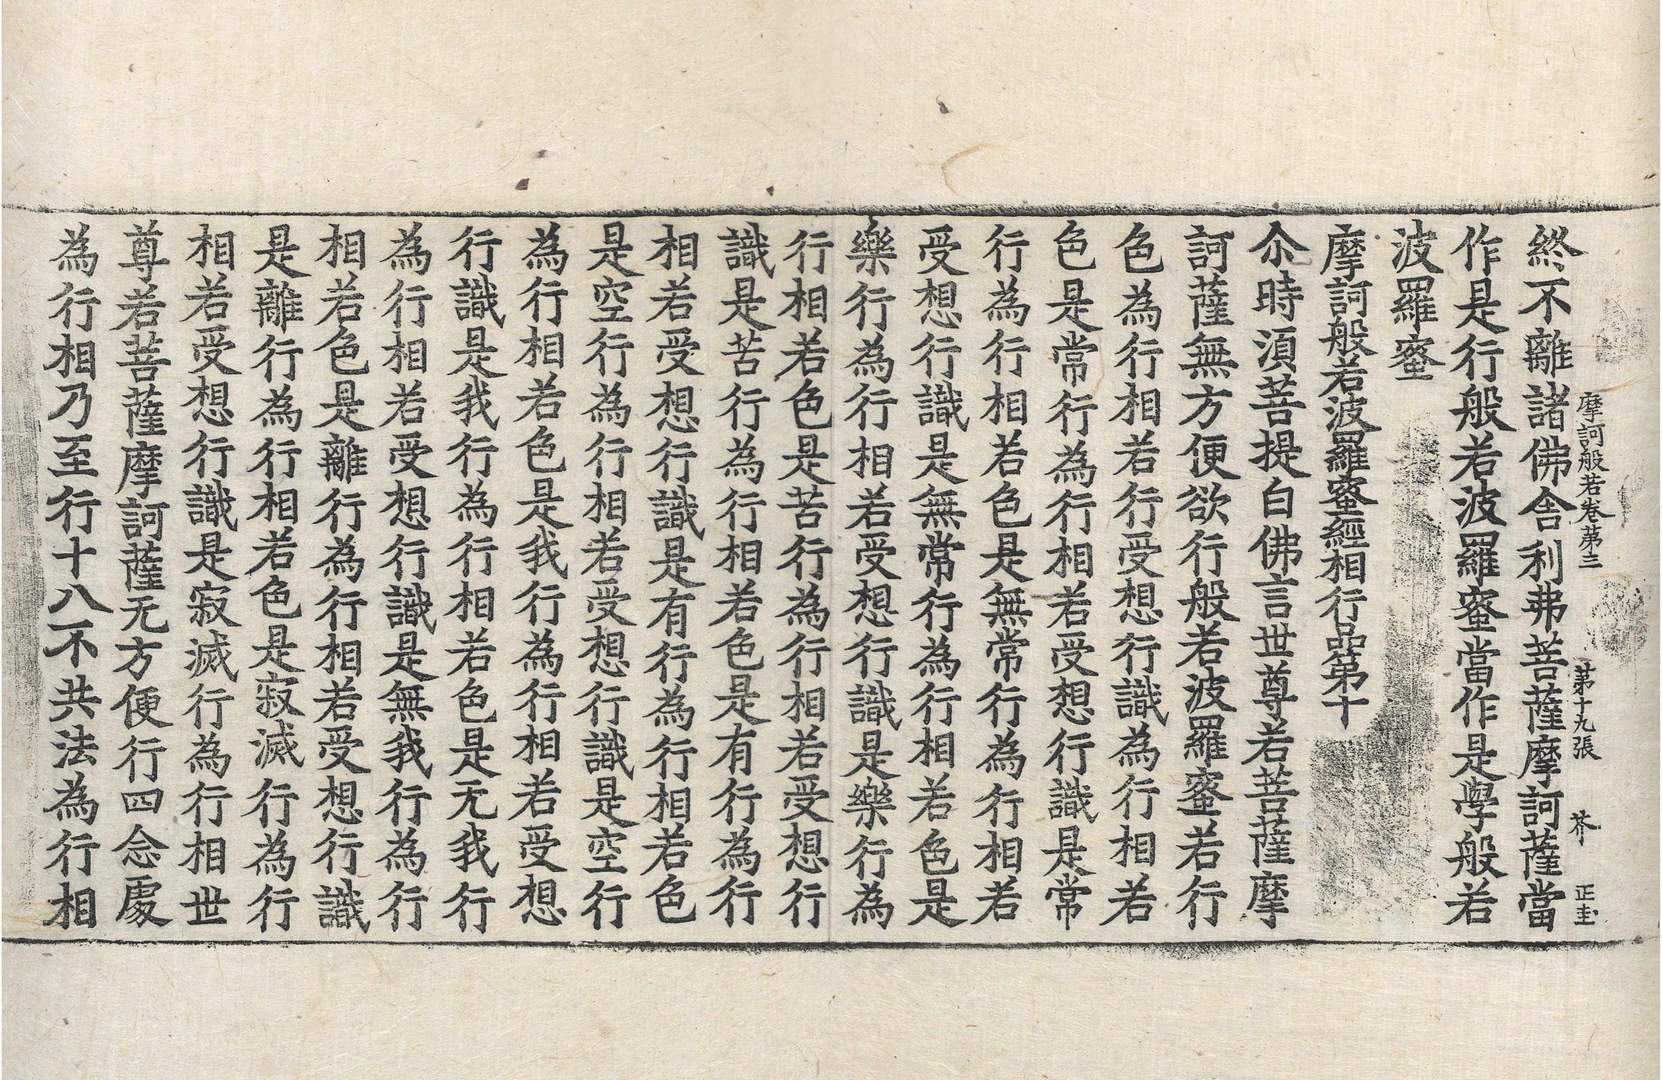 摩訶般若卷第三 第十九張 芥 正圭
終不離諸佛舍利弗菩薩摩訶薩當
作是行般若波羅蜜當作是學般若
波羅蜜
摩訶般若波羅蜜經相行品第十
尒時湏菩提白佛言世尊若菩薩摩
訶薩無方便欲行般若波羅蜜若行
色為行相若行受想行識為行相若
色是常行為行相若受想行識是常
行為行相若色是無常行為行相若
受想行識是無常行為行相若色是
樂行為行相若受想行識是樂行為
行相若色是苦行為行相若受想行
識是苦行為行相若色是有行為行
相若受想行識是有行為行相若色
是空行為行相若受想行識是空行
為行相若色是我行為行相若受想
行識是我行為行相若色是无我行
為行相若受想行識是無我行為行
相若色是離行為行相若受想行識
是離行為行相若色是寂滅行為行
相若受想行識是寂滅行為行相世
尊若菩薩摩訶薩无方便行四念處
為行相乃至行十八不共法為行相